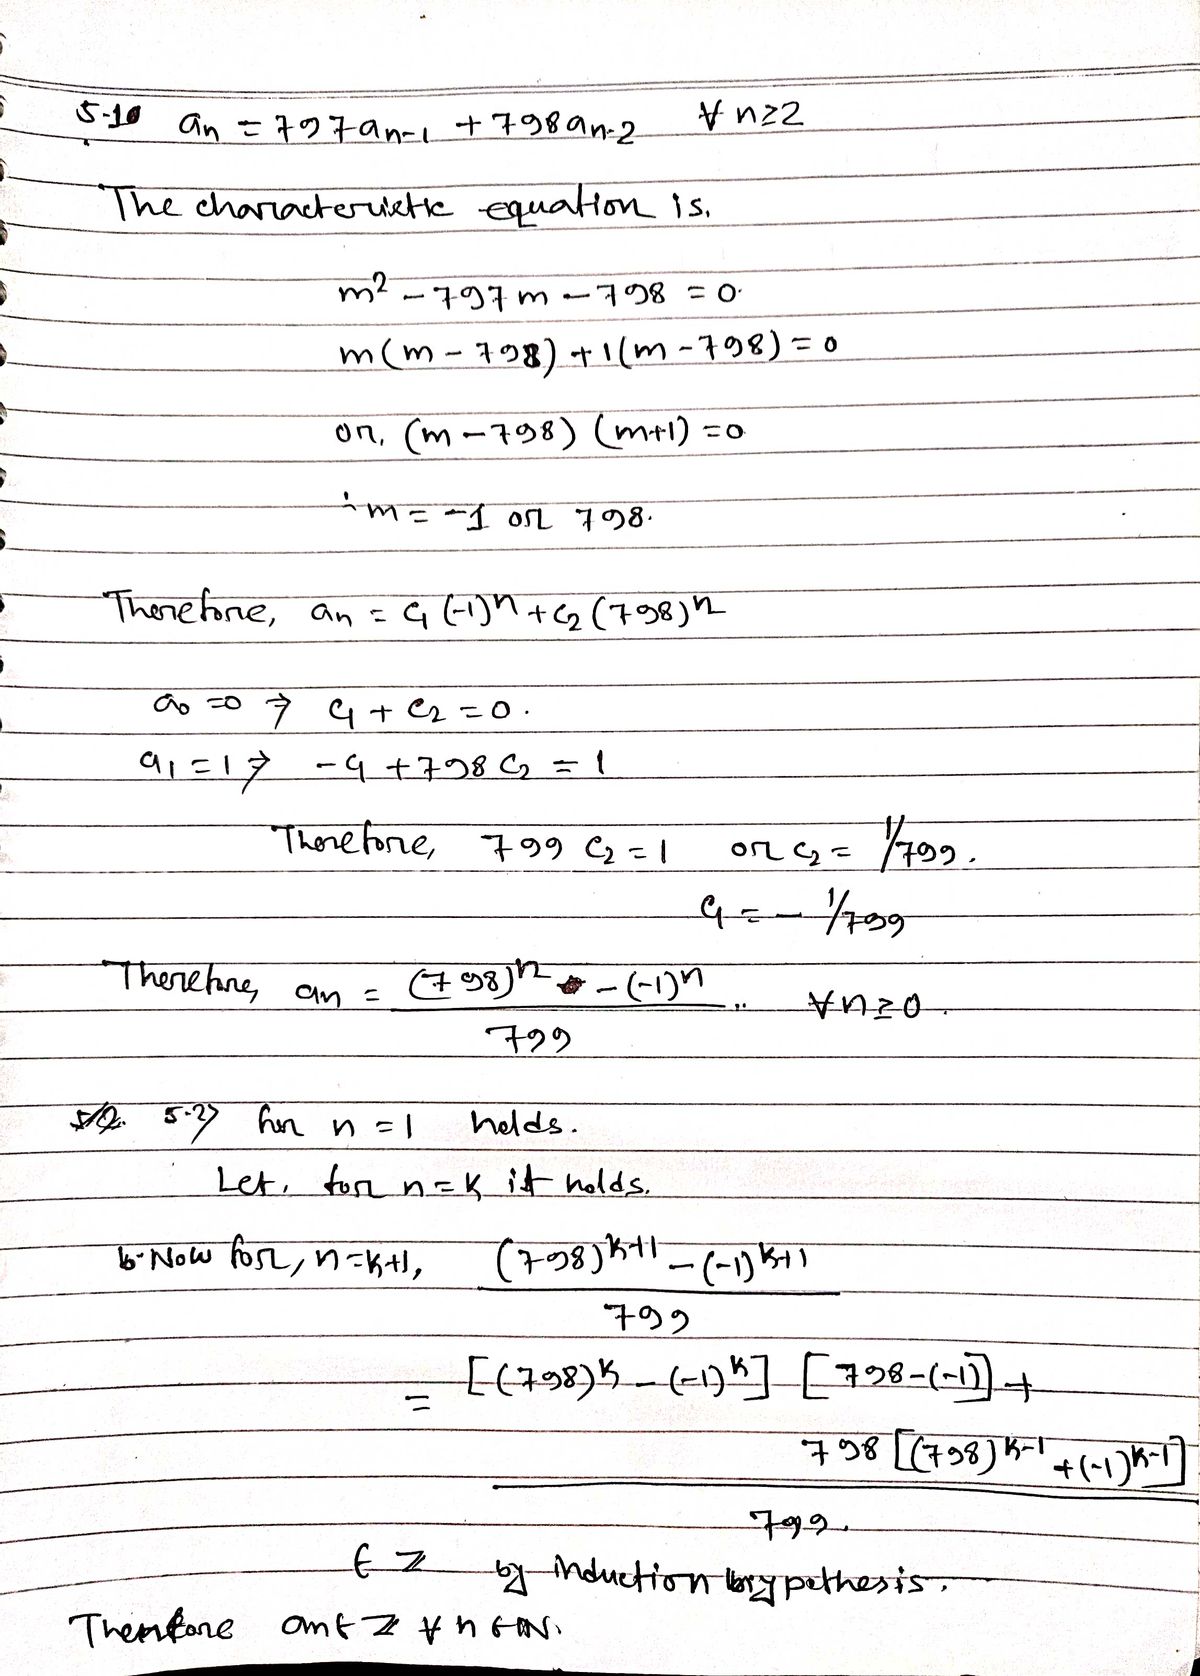 5.1) aₙ = 797aₙ₋₁ + 798aₙ₋₂ ∀ n≥2
The characteristic equation is,
m² - 797m - 798 = 0.
m(m - 798) + 1(m - 798) = 0
or, (m - 798) (m+1) = 0
∴ m = -1 or 798.
Therefore, aₙ = c₁(-1)ⁿ + c₂(798)ⁿ
a₀ = 0 ⇒ c₁ + c₂ = 0.
a₁ = 1 ⇒ -c₁ + 798c₂ = 1
Therefore, 799 c₂ = 1 or c₂ = 1/799.
c₁ = - 1/799
Therefore, aₙ = (798)ⁿ - (-1)ⁿ / 799 .. ∀ n≥0.
5.2) for n = 1 holds.
Let, for n = k it holds.
Now for, n = k+1, (798)ᵏ⁺¹ - (-1)ᵏ⁺¹ / 799
= [(798)ᵏ - (-1)ᵏ] [798-(-1)] +
798[(798)ᵏ⁻¹ + (-1)ᵏ⁻¹]
799.
∈ ℤ by induction hypothesis.
Therefore an ∈ ℤ ∀ n ∈ ℕ.